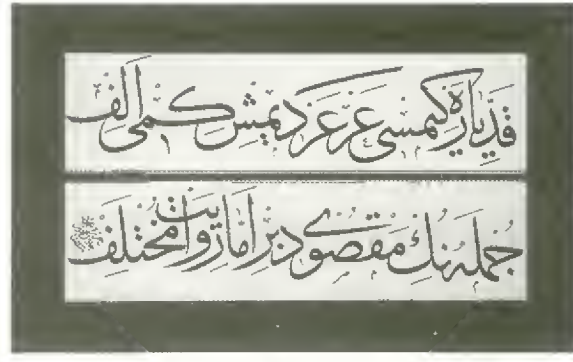 قدِّ ياره كيمسى عرعر ديمش كمى الف
جمله نك مقصودى بر اما روايت مختلف